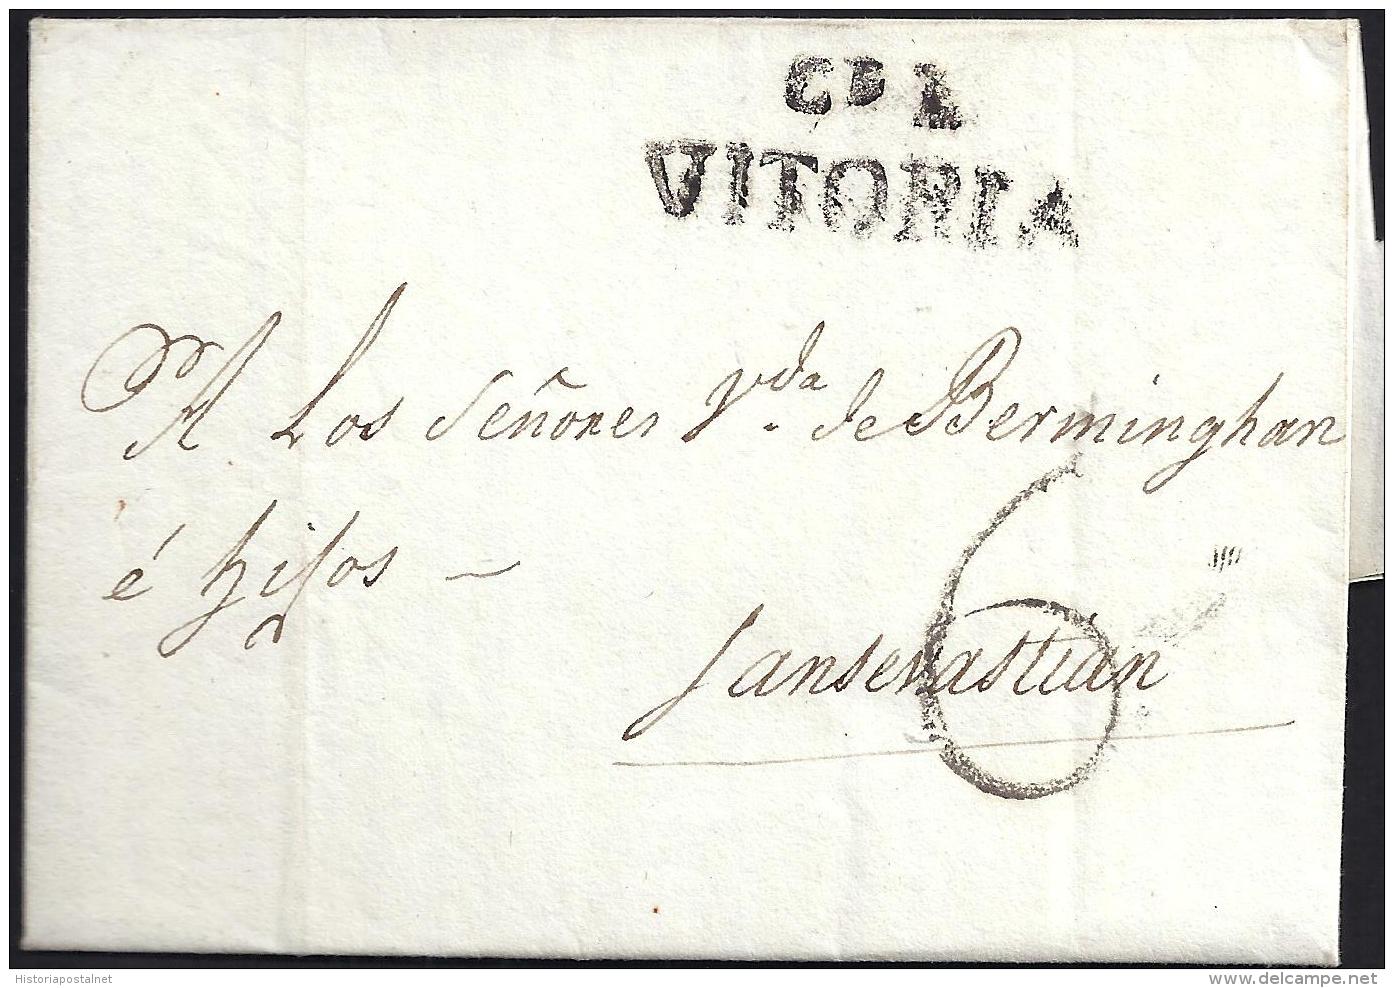 Cᴅ A
VITORIA
A Los Señores Vda. de Berminghan
é hijos —
6
Sansevastián
Historiapostalnet
www.delcampe.net